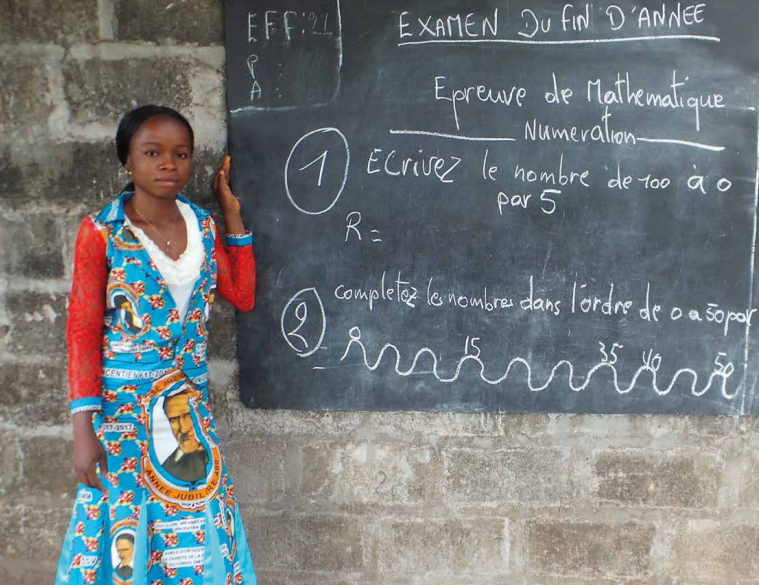 EFF: 21
P
A :
EXAMEN DU FIN D'ANNEE
Epreuve de Mathematique
Numeration
1
Ecrivez le nombre de 100 à 0
par 5
R =
2
completez les nombres dans l'ordre de 0 a 50 par
0 15 35 40 50
ANNEE JUBILAIRE 400
17-2017